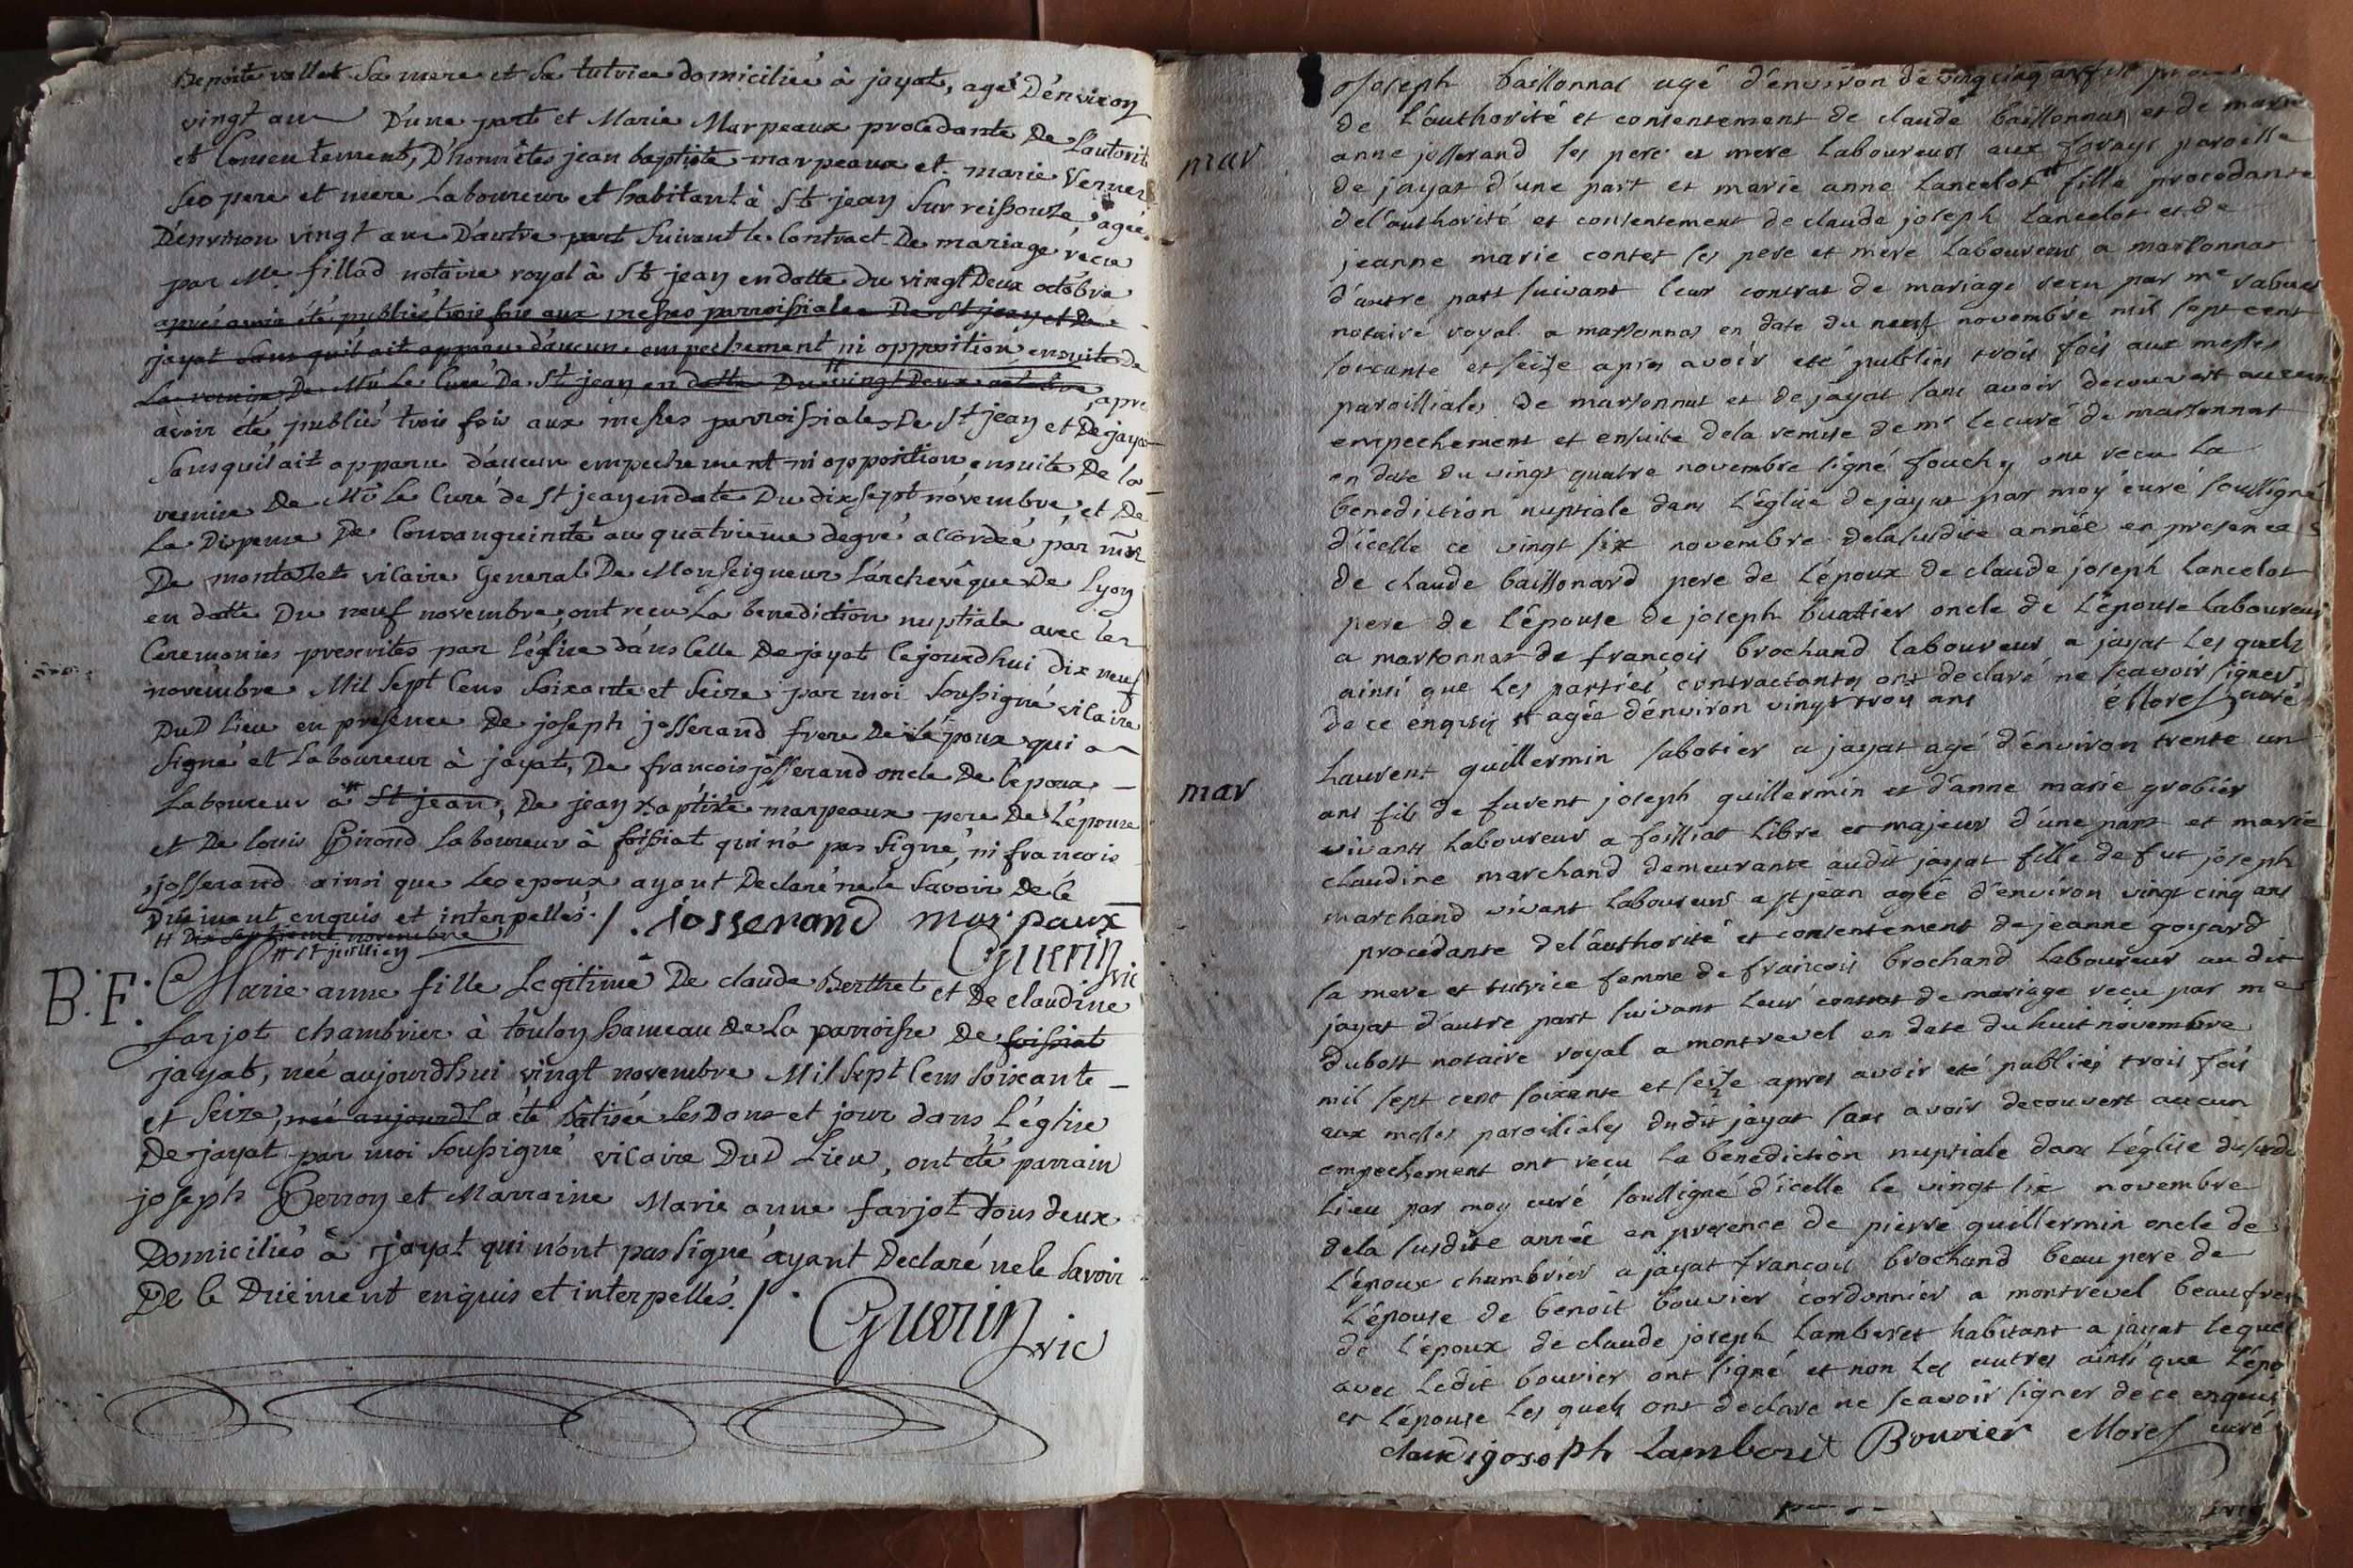 Benoite vallet Sa mere et Sa tutrice domiciliée à jayat, agé D'environ
vingt ans D'une part et Marie Marpeaux procedante De L'autorité
et Consentement, D'honnêtes jean baptiste marpeaux et marie Verner
Ses pere et mere Laboureur et habitant à St jean Sur reissouze, agée
D'environ vingt ans D'autre part Suivant le Contract De mariage recu
par Me fillod notaire royal à St jean en datte Du vingt Deux octobre
après avoir été publiés trois fois aux messes parroissiales De St jean et De
jayat Sans quil ait apparu d'aucun empechement ni opposition ensuite De
La remise De Mr Le Curé De St jean en datte Du vingt Deux octobre, apres
avoir été publié trois fois aux messes parroissiales De St jean et De jayat
Sans quil ait apparu d'aucun empechement ni opposition ensuite De la
remise De Mr Le Curé de St jean en date Du dix sept novembre et De
La Dispense De Consanguinité au quatrieme degré accordée par mr
De montazet vicaire General De Monseigneur L'archevêque De Lyon
en datte Du neuf novembre, ont recu La benediction nuptiale avec les
Ceremonies prescrites par l'église dans Celle De jayat Cejourdhui dix neuf
novembre Mil Sept Cens Soixante et Seize par moi Soussigné vicaire
DuD Lieu en presence De joseph josserand frere De L'époux qui a
Signé et Laboureur à jayat, De francois josserand oncle De l'epoux
Laboureur à # St jean, De jean Baptiste marpeaux pere De L'épouse
et De Louis Girond Laboureur à foissiat qui n'a pas Signé, ni francois
josserand ainsi que Les epoux ayant Declaré ne le Savoir De Ce
Duëment enquis et interpellés. /. Josserand mar paux
# Dix Septieme novembre
# St julien
Guerin vic
B. F. Marie anne fille Legitime De claude Berthet et De claudine
farjot chambrier à toulon hameau de La parroisse De foissiat
jayat, née aujourdhui vingt novembre Mil Sept Cens Soixante
et Seize, née aujourdh a été batisée Les Dans et jour dans L'église
De jayat par moi Soussigné vicaire DuD Lieu, ont été parrain
joseph Perron et Marraine Marie anne farjot tous deux
Domiciliés à jayat qui n'ont pas Signé ayant Declaré ne le Savoir
De Ce Duëment enquis et interpellés. /.
Guerin vic
mar
joseph baissonnat agé d'environ de vingt cinq ans
de L'authorité et consentement de claude baissonnat et de marie
anne josserand ses pere et mere Laboureurs aux forays paroisse
de jayat d'une part et marie anne Lancelot # fille procedante
de l'authorité et consentement de claude joseph Lancelot et de
jeanne marie contet ses pere et mere Laboureurs a marsonnat
d'autre part suivant leur contrat de mariage recu par me
notaire royal a marsonnas en date du neuf novembre mil sept cent
soixante et seize apres avoir eté publiés trois fois aux messes
paroissiales de marsonnat et de jayat sans avoir decouvert aucun
empechement et ensuite de la remise de mr le curé de marsonnat
en date du vingt quatre novembre signé fouchy ont recu La
benediction nuptiale dans L'église de jayat par moy curé soussigné
d'icelle ce vingt six novembre de la susdite année en presence
de claude baissonard pere de L'époux de claude joseph Lancelot
pere de L'épouse de joseph buattier oncle de L'épouse Laboureurs
a marsonnat de francois brochand Laboureur a jayat Les quels
ainsi que Les parties contractantes ont declaré ne scavoir signer
de ce enquis # agée d'environ vingt trois ans Morel curé
mar
Laurent guillermin sabotier a jayat agé d'environ trente un
ans fils de furent joseph guillermin et d'anne marie grobier
vivants Laboureur a foissiat Libre et majeur d'une part et marie
claudine marchand demeurante audit jayat fille de fut joseph
marchand vivant Laboureur a st jean agée d'environ vingt cinq ans
procedante de l'authorité et consentement de jeanne goyard
sa mere et tutrice femme de francois brochand Laboureur au dit
jayat d'autre part suivant Leur contrat de mariage recu par me
dubost notaire royal a montrevel en date du huit novembre
mil sept cent soixante et seize apres avoir eté publiés trois fois
aux messes paroissiales dudit jayat sans avoir decouvert aucun
empechement ont recu La benediction nuptiale dans L'église dusudit
Lieu par moy curé soussigné d'icelle le vingt six novembre
de la susdite année en presence de pierre guillermin oncle de
L'époux chambrier a jayat francois brochand beau pere de
L'épouse de benoit bouvier cordonnier a montrevel beaufrere
de L'époux de claude joseph Lamberet habitant a jayat lequel
avec Ledit bouvier ont signé et non Les autres ainsi que L'epo
et L'épouse Les quels ont declaré ne scavoir signer de ce enquis
claude joseph Lamberet Bouvier Morel curé